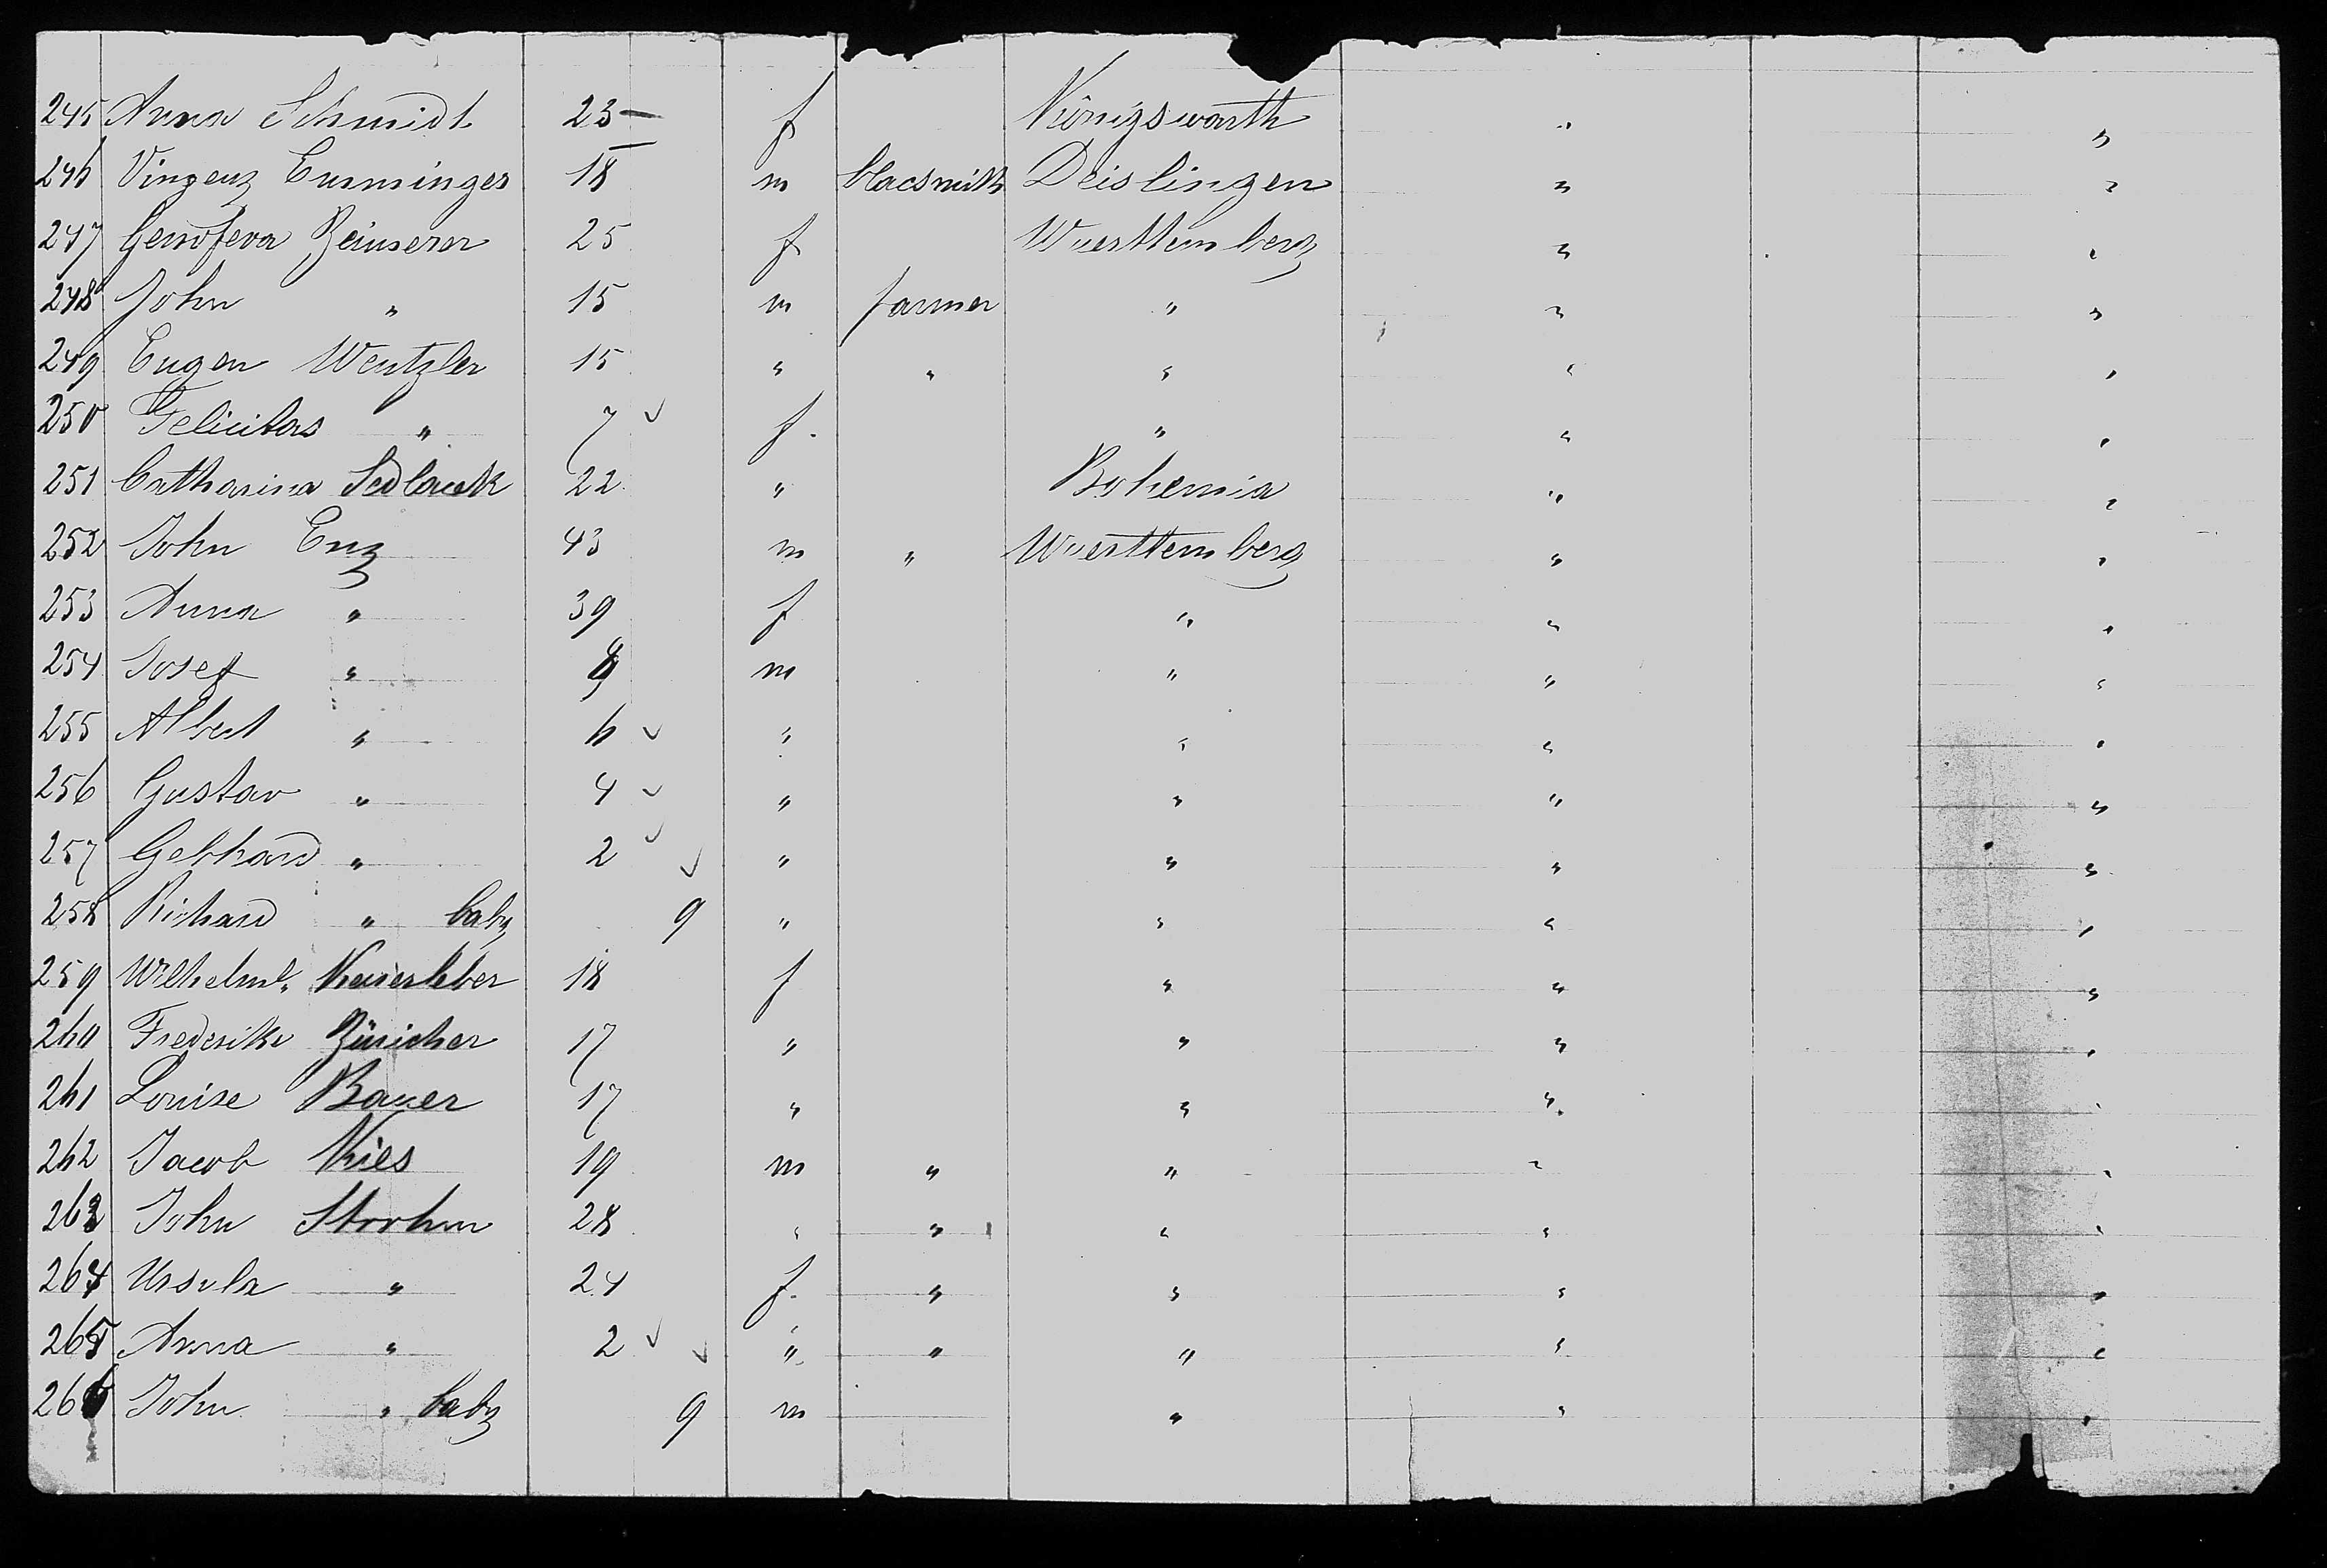 245 Anna Schmidt 23 — f Königswarth " "
246 Vinzenz Emminger 18 m blacsmith Deislingen " "
247 Genofeva 25 f Wuerttemberg " "
248 John " 15 m farmer " " "
249 Eugen Wentzler 15 " " " " "
250 Felicitas " 7 ✓ f. " " "
251 Catharina Sedlacek 22 " Bohemia " "
252 John Enz 43 m " Wuerttemberg " "
253 Anna " 39 f " " "
254 Josef " m " " "
255 Albert " 6 ✓ " " " "
256 Gustav " 4 ✓ " " " "
257 Gebhard " 2 ✓ ✓ " " " "
258 Richard " baby 9 " " " "
259 Wilhelm. 18 f " " "
260 Frederike Züricher 17 " " " "
261 Louise Bauer 17 " " " "
262 Jacob Kies 19 m " " " "
263 John Strohm 28 " " " " "
264 Ursula " 24 f. " " " "
265 Anna " 2 ✓ ✓ " " " " "
266 John " baby 9 m " " "